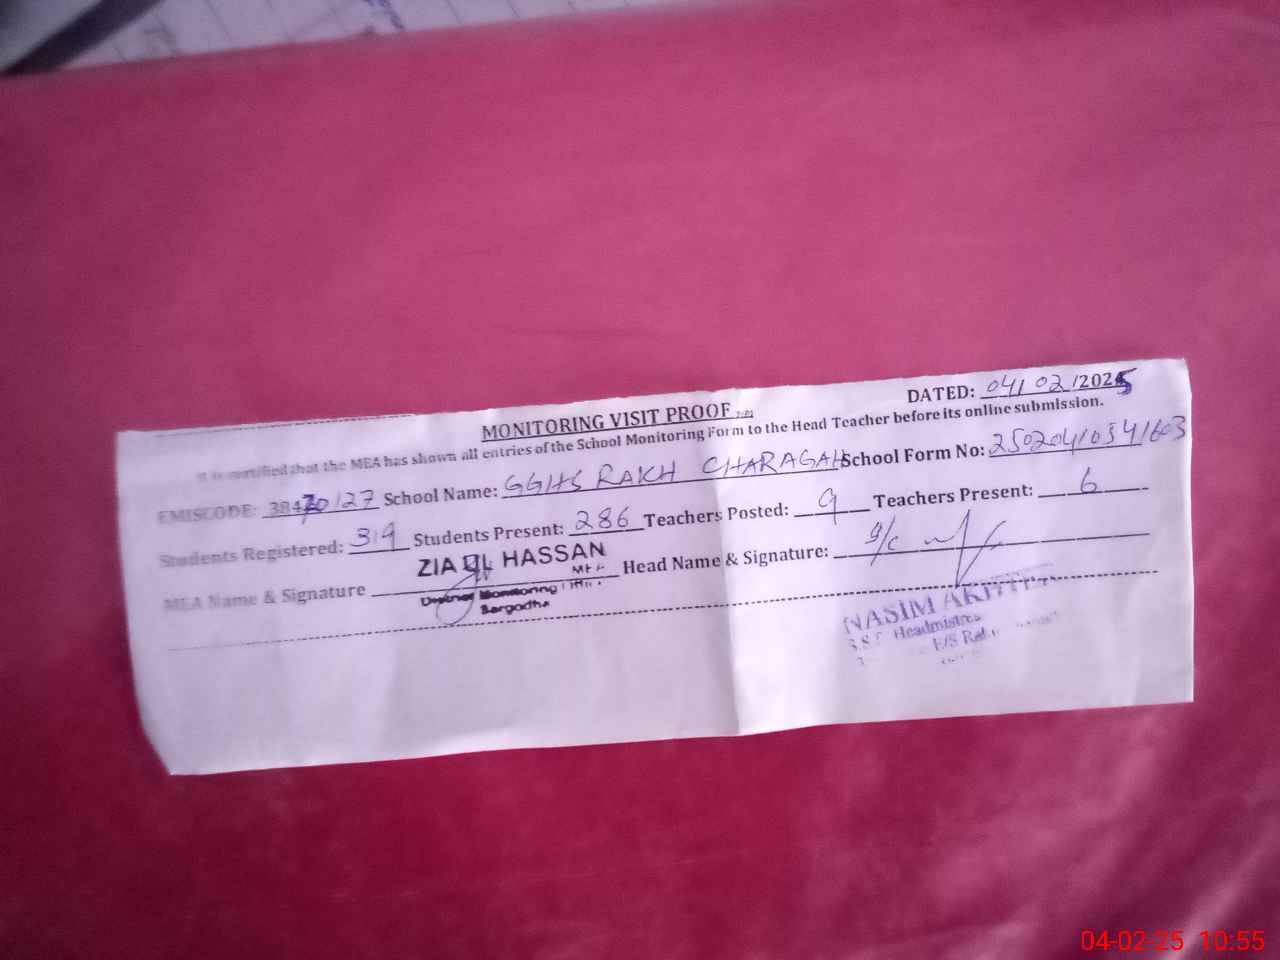 DATED: 04/02/2025
MONITORING VISIT PROOF
It is certified that the MEA has shown all entries of the School Monitoring Form to the Head Teacher before its online submission.
EMISCODE: 38470127 School Name: GGHS RAKH CHARAGAH School Form No: 25020410341603
Students Registered: 319 Students Present: 286 Teachers Posted: 9 Teachers Present: 6
MEA Name & Signature ZIA UL HASSAN Head Name & Signature:
MEA
District Monitoring
Sargodha
NASIM AKHTER
Headmistress
E/S
04-02-25 10:55